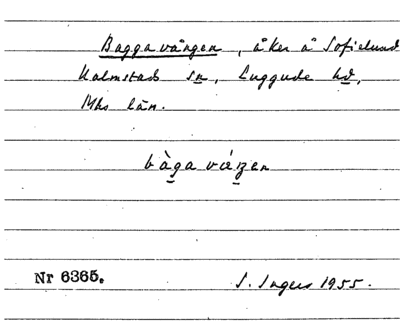 Baggavången, åker å Sofielund
Halmstads sn, Luggude hd,
Mhs län.
bàgavázen
Nr 6365.
S. Ingers 1955.